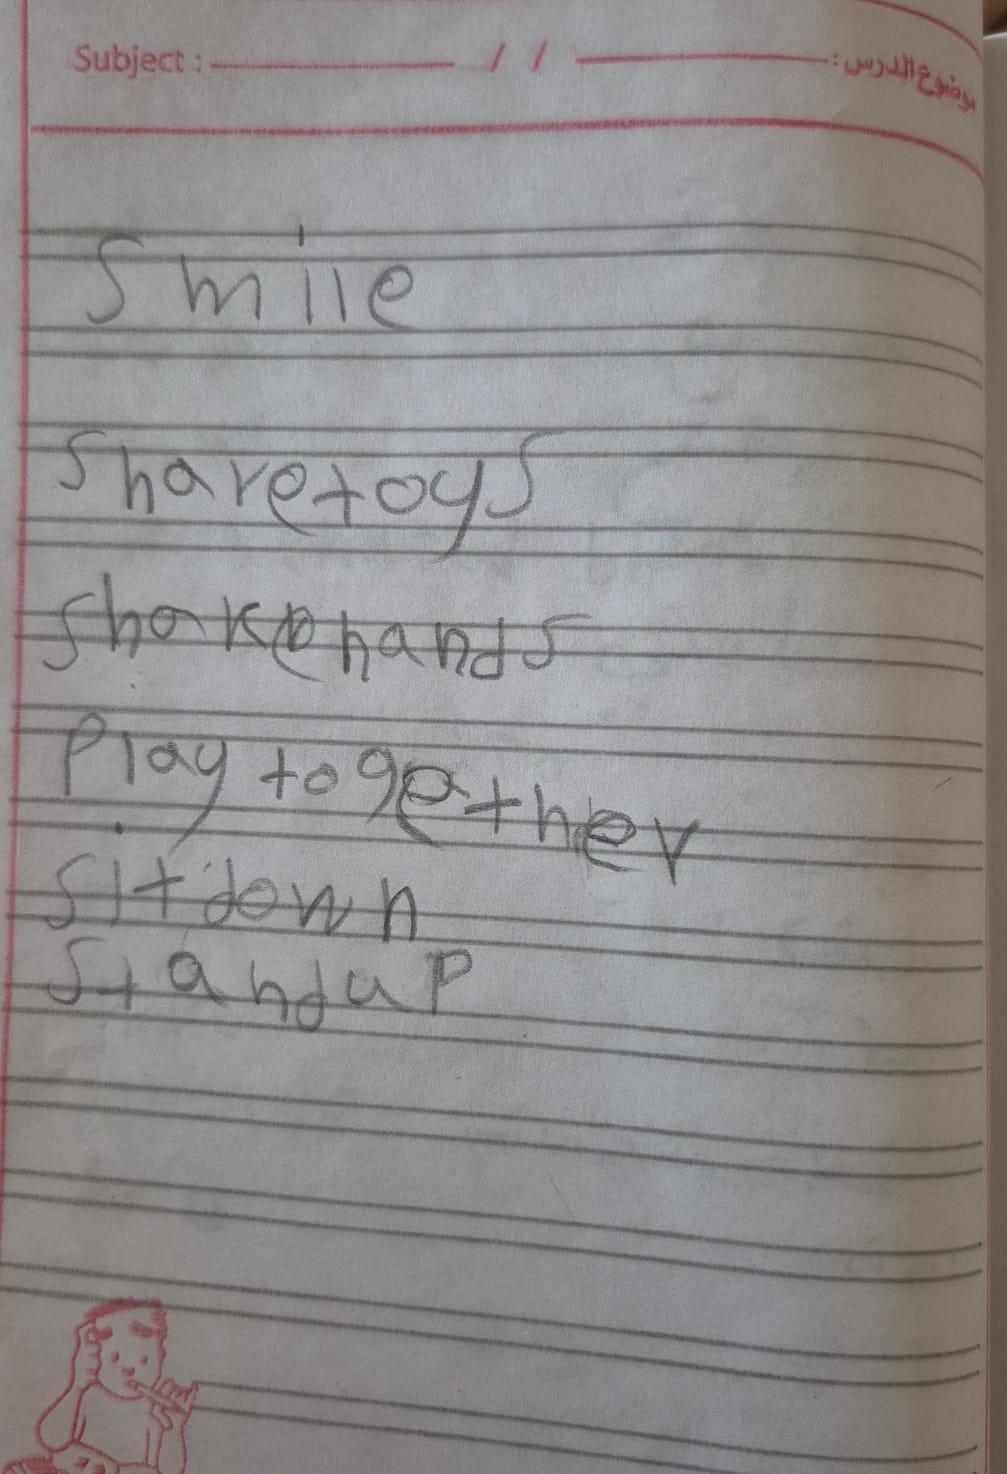 Subject : / / موضوع الدرس :
Smile
Sharetoys
Shakehands
Play together
Sitdown
Standup